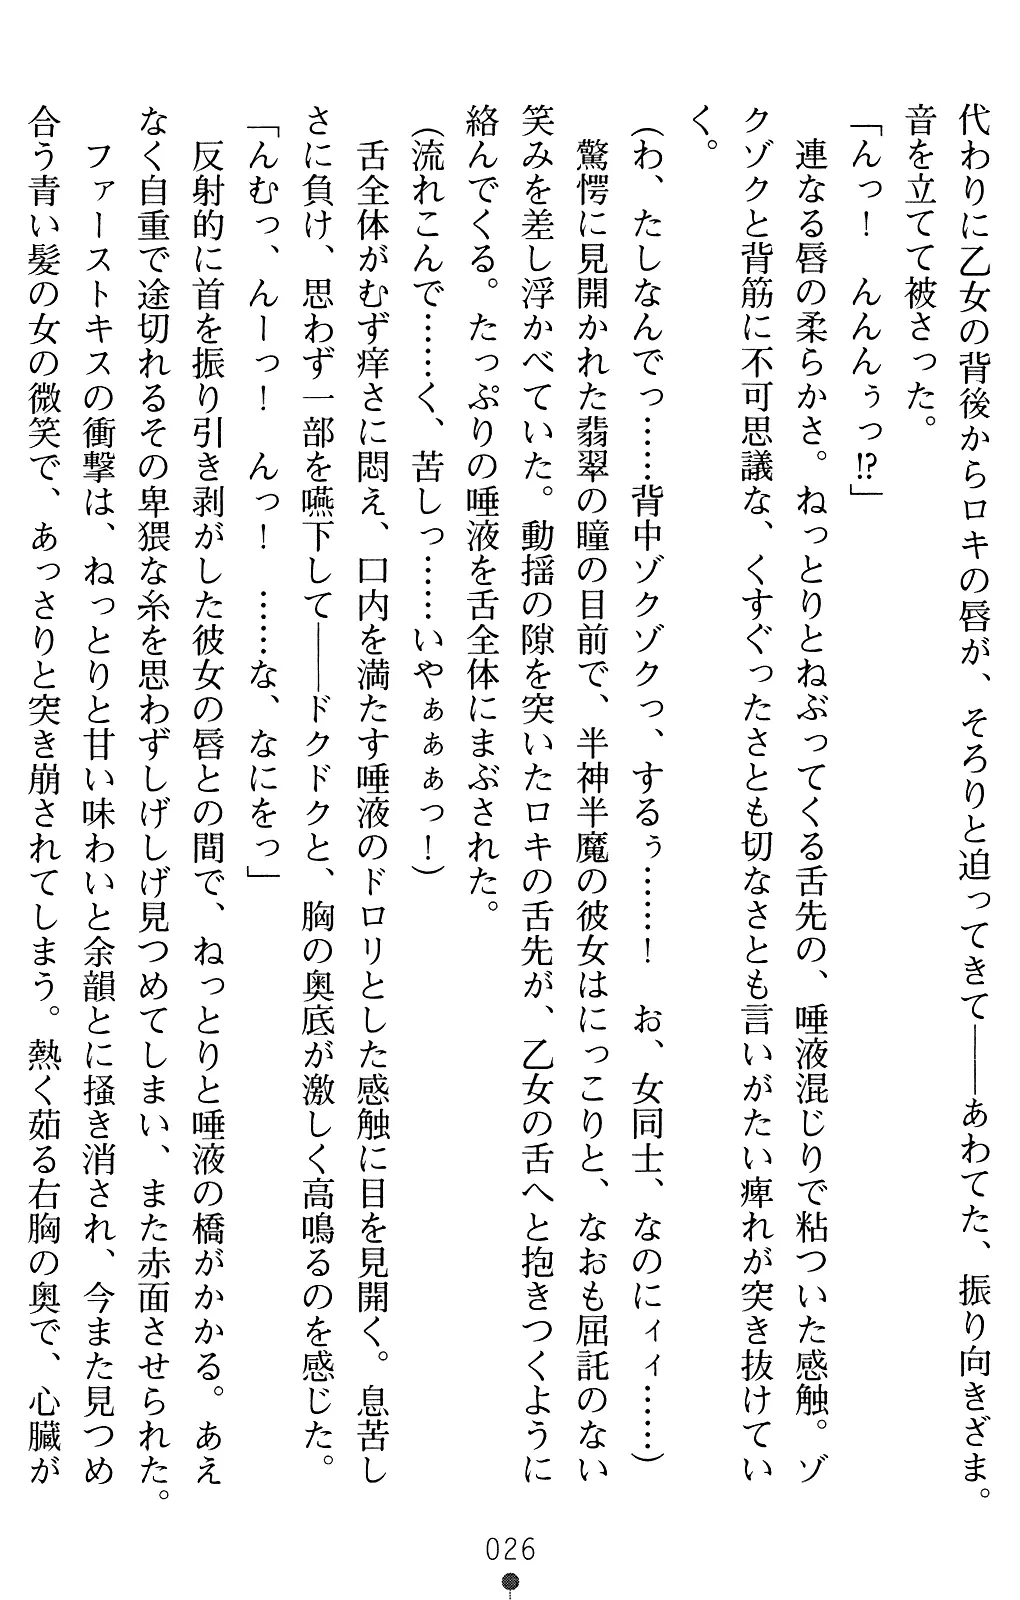 代わりに乙女の背後からロキの唇が、そろりと迫ってきて――あわてた、振り向きざま。
音を立てて被さった。
「んっ！　んんんぅっ!?」
　連なる唇の柔らかさ。ねっとりとねぶってくる舌先の、唾液混じりで粘ついた感触。ゾ
クゾクと背筋に不可思議な、くすぐったさとも切なさとも言いがたい痺れが突き抜けてい
く。
（わ、たしなんでっ……背中ゾクゾクっ、するぅ……！　お、女同士、なのにィィ……）
　驚愕に見開かれた翡翠の瞳の目前で、半神半魔の彼女はにっこりと、なおも屈託のない
笑みを差し浮かべていた。動揺の隙を突いたロキの舌先が、乙女の舌へと抱きつくように
絡んでくる。たっぷりの唾液を舌全体にまぶされた。
（流れこんで……く、苦しっ……いやぁぁぁっ！）
　舌全体がむず痒さに悶え、口内を満たす唾液のドロリとした感触に目を見開く。息苦し
さに負け、思わず一部を嚥下して――ドクドクと、胸の奥底が激しく高鳴るのを感じた。
「んむっ、んーっ！　んっ！　……な、なにをっ」
　反射的に首を振り引き剥がした彼女の唇との間で、ねっとりと唾液の橋がかかる。あえ
なく自重で途切れるその卑猥な糸を思わずしげしげ見つめてしまい、また赤面させられた。
　ファーストキスの衝撃は、ねっとりと甘い味わいと余韻とに掻き消され、今また見つめ
合う青い髪の女の微笑で、あっさりと突き崩されてしまう。熱く茹る右胸の奥で、心臓が
026